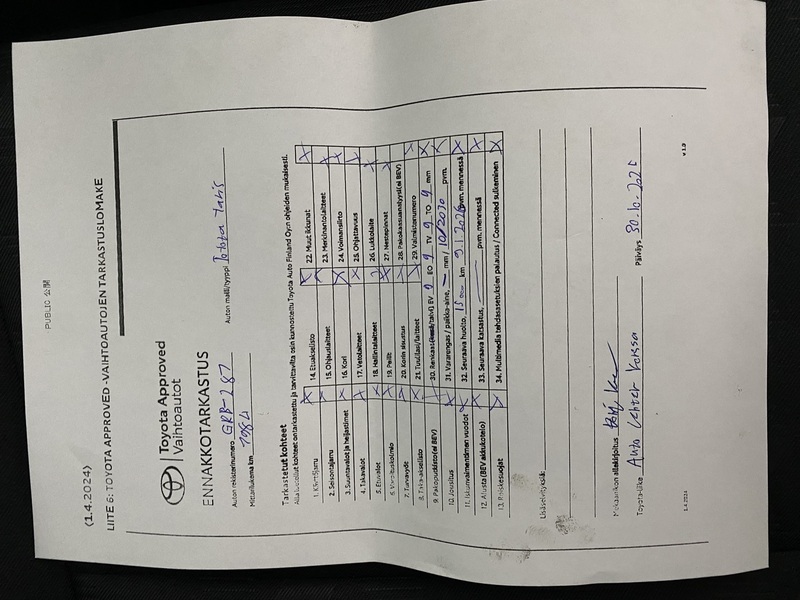 PUBLIC 公開
(1.4.2024)
LIITE 6: TOYOTA APPROVED -VAIHTOAUTOJEN TARKASTUSLOMAKE
Toyota Approved
Vaihtoautot
ENNAKKOTARKASTUS
Auton rekisterinumero GRB-287 Auton malli/tyyppi Toyota Yaris
Mittarilukema km 7084
Tarkastetut kohteet
Alla luetellut kohteet on tarkastettu ja tarvittavilta osin kunnostettu Toyota Auto Finland Oy:n ohjeiden mukaisesti.
1. Käsijarru X 14. Etuakselisto X 22. Muut ikkunat X
2. Seisontajarru X 15. Ohjauslaitteet X 23. Merkinantolaitteet X
3. Suuntavalot ja heijastimet X 16. Kori X 24. Voimansiirto X
4. Takavalot X 17. Vetolaitteet X 25. Ohjattavuus X
5. Etuvalot X 18. Hallintalaitteet X 26. Lukkolaite X
19. Peilit X 27. Nestepinnat X
7. Turvavyöt X 20. Korin sisustus X 28. Pakokaasuanalyysi(ei BEV)
8. Taka-akselisto X 21. Tuulilasi/laitteet X 29. Valmistenumero X
9. Pakoputkisto(ei BEV) 30. Renkaat(kesä/talvi) EV 9 EO 9 TV 9 TO 9 mm X
10. Jousitus X 31. Vararengas / paikka-aine, — mm / 10/2030 pvm. X
11. Iskunvaimentimen vuodot X 32. Seuraava huolto, 15000 km pvm. mennessä X
12. Alusta (BEV akkukotelo) X 33. Seuraava katsastus, pvm. mennessä X
13. Roiskesuojat X 34. Multimedia tehdasasetuksien palautus / Connected sulkeminen X
Lisäselvityksiä:
Mekaanikon allekirjoitus
Toyota-liike Auto Center Päiväys
1.4.2024 v 1.9